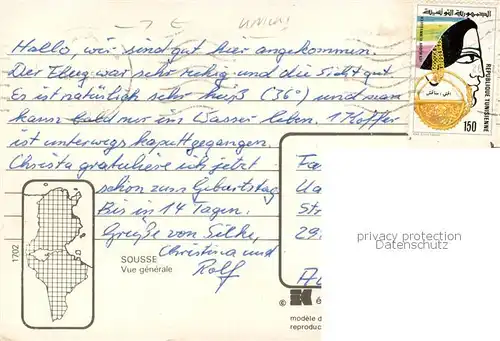 Hallo, wir sind gut hier angekommen.
Der Flug war sehr ruhig und die Sicht gut
Es ist natürlich sehr heiß (36°) und man
kann bald nur im Wasser leben. 1 Koffer
ist unterwegs kaputtgegangen.
Christa gratuliere ich jetzt
schon zum Geburtstag
Bis in 14 Tagen.
Grüße von Silke,
Christina und
Rolf
1702
SOUSSE
Vue générale
الجمهورية التونسية
REPUBLIQUE TUNISIENNE
150
Fa
Str
29
privacy protection
Datenschutz
©
modèle d
reproduc